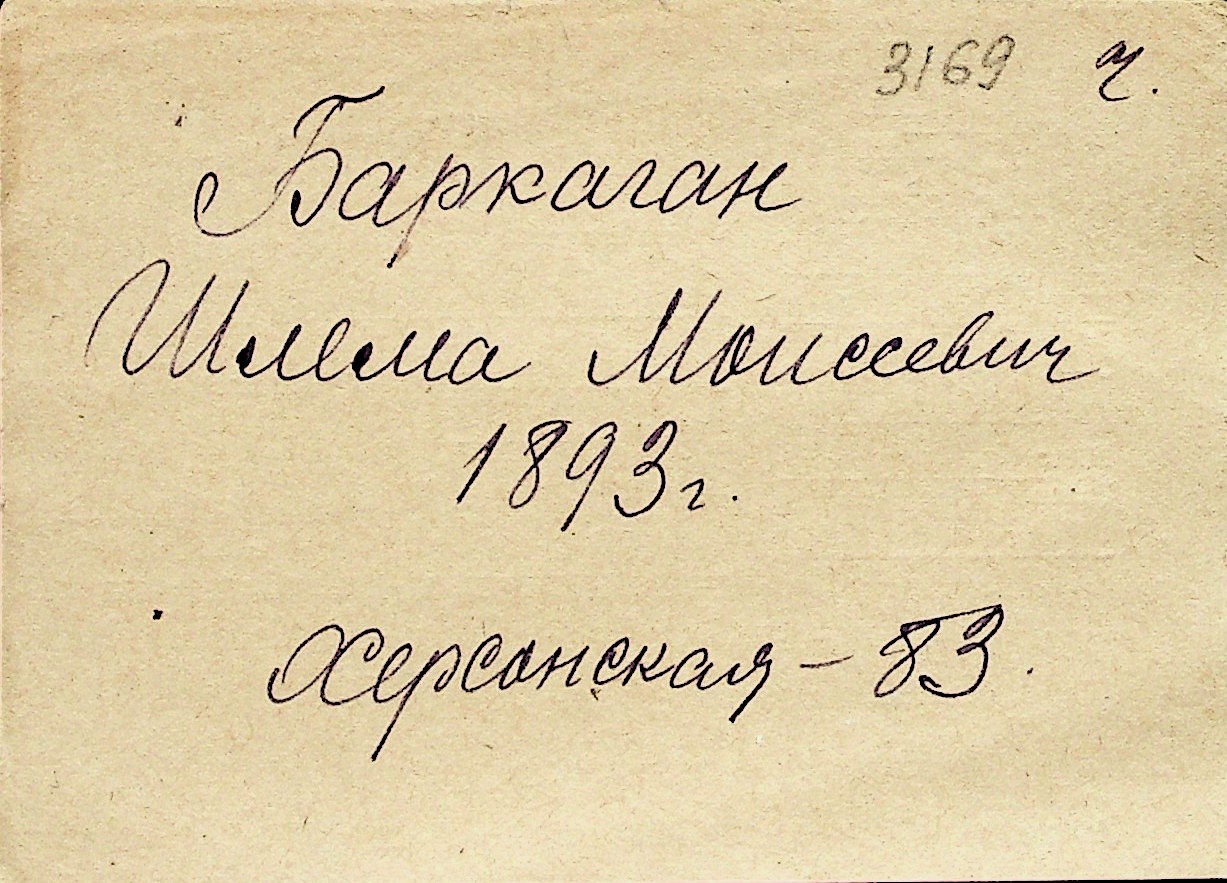 3169 ч.
Баркаган
Шлема Моисеевич
1893 г.
Херсонская – 83.